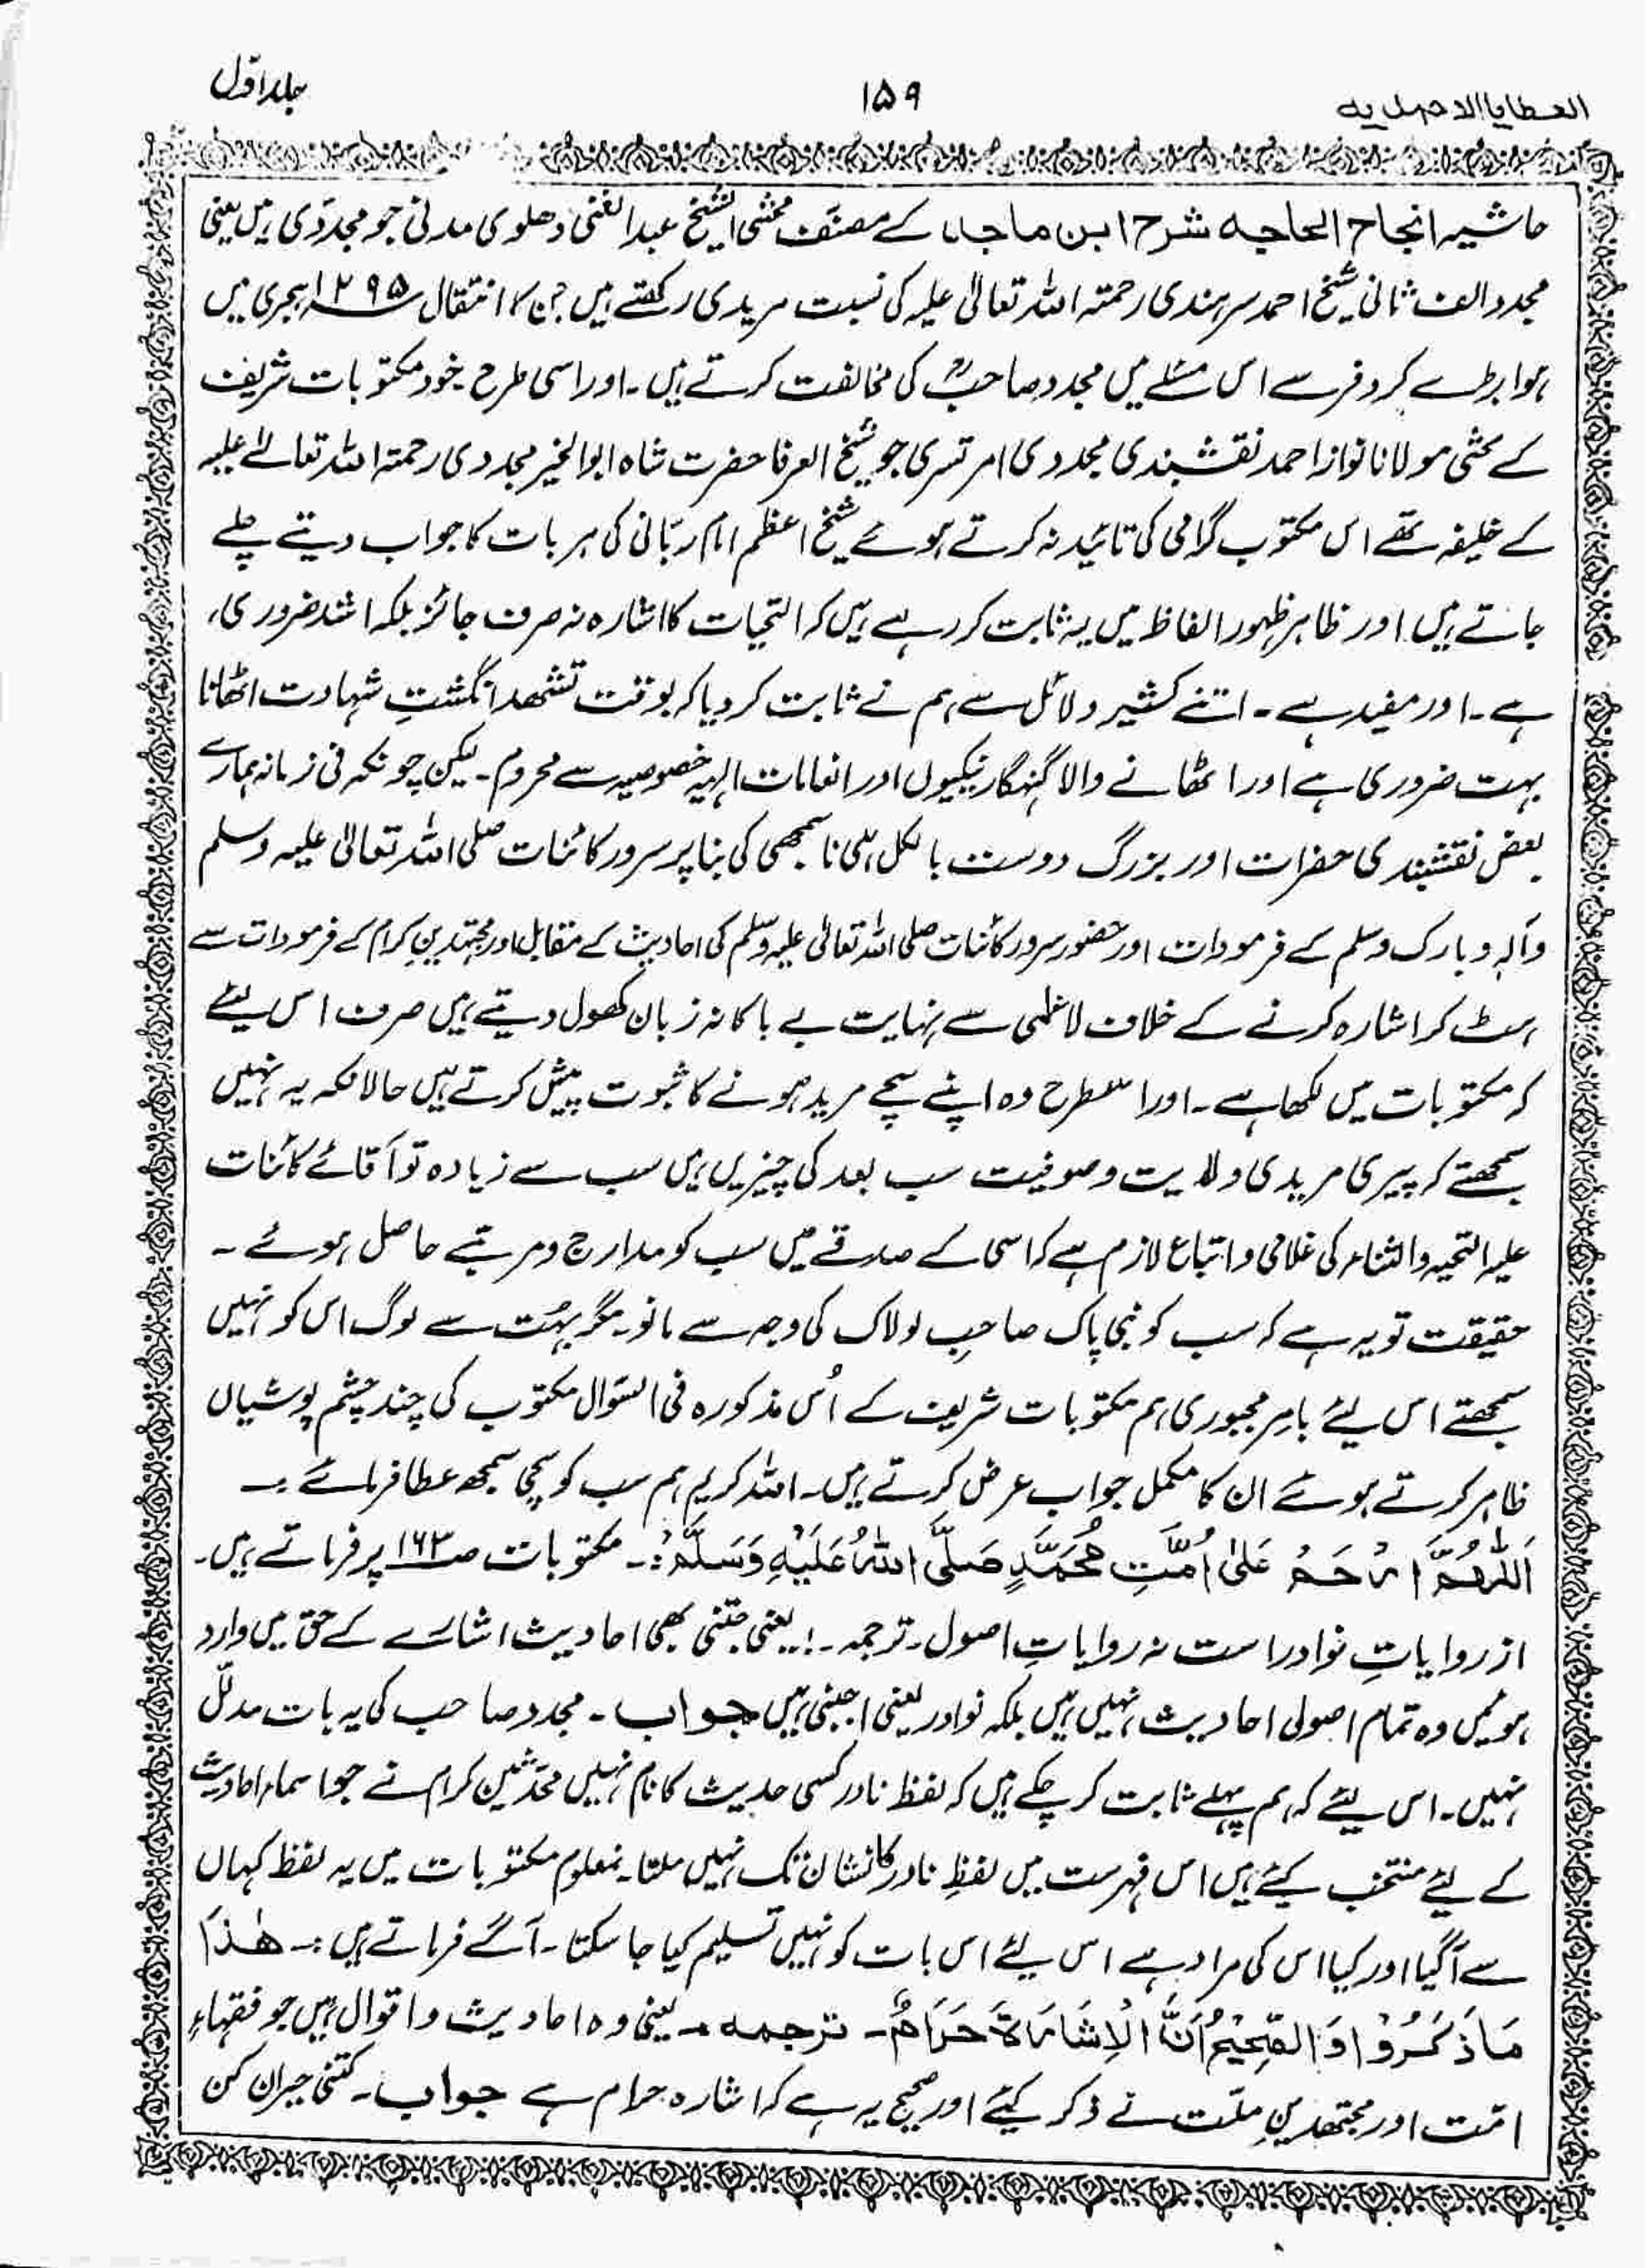 العطایا الاحمدیہ
۱۵۹
جلد اوّل
حاشیہ انجاح الحاجہ شرح ابن ماجہ کے مصنف محشی الشیخ عبدالغنی دھلوی مدنی جو مجددی ہیں یعنی
مجدد الف ثانی شیخ احمد سرہندی رحمتہ اللہ تعالیٰ علیہ کی نسبت مریدی رکھتے ہیں جن کا انتقال ۱۲۹۵ ہجری میں
ہوا بڑے کروفر سے اس مسئلے میں مجدد صاحبؒ کی مخالفت کرتے ہیں۔ اور اسی طرح خود مکتوبات شریف
کے محشی مولانا نواز احمد نقشبندی مجددی امرتسری جو شیخ العرفا حضرت شاہ ابوالخیر مجددی رحمتہ اللہ تعالےٰ علیہ
کے خلیفہ تھے اس مکتوب گرامی کی تائید نہ کرتے ہوئے شیخ اعظم امام ربّانی کی ہر بات کا جواب دیتے چلے
جاتے ہیں اور ظاہر ظہور الفاظ میں یہ ثابت کر رہے ہیں کہ التحیات کا اشارہ نہ صرف جائز بلکہ اشد ضروری،
ہے۔ اور مفید ہے۔ اتنے کثیر دلائل سے ہم نے ثابت کر دیا کہ بوقت تشھد انگشتِ شہادت اٹھانا
بہت ضروری ہے اور اٹھانے والا گنہگار نیکیوں اور انعامات الٰہیہ خصوصیہ سے محروم۔ لیکن چونکہ فی زمانہ ہمارے
بعض نقشبندی حضرات اور بزرگ دوست بالکل ہی ناسمجھی کی بنا پر سرور کائنات صلی اللہ تعالیٰ علیہ وسلم
وآلہ وبارک وسلم کے فرمودات اور حضور سرور کائنات صلی اللہ تعالیٰ علیہ وسلم کی احادیث کے مقابل اور مجتہدینِ کرام کے فرمودات سے
ہٹ کر اشارہ کرنے کے خلاف لاعلمی سے نہایت بے باکانہ زبان کھول دیتے ہیں صرف اس لیئے
کہ مکتوبات میں لکھا ہے۔ اور اسطرح وہ اپنے سچے مرید ہونے کا ثبوت پیش کرتے ہیں حالانکہ یہ نہیں
سمجھتے کہ پیری مریدی ولایت وصوفیت سب بعد کی چیزیں ہیں سب سے زیادہ تو آقائے کائنات
علیہ التحیہ والثناء کی غلامی واتباع لازم ہے کہ اسی کے صدقے میں سب کو مدارج ومرتبے حاصل ہوئے۔
حقیقت تو یہ ہے کہ سب کو نبی پاک صاحبِ لولاک کی وجہ سے مانو۔ مگر بہُت سے لوگ اس کو نہیں
سمجھتے اس لیئے بامرِ مجبوری ہم مکتوبات شریف کے اُس مذکورہ فی السّوال مکتوب کی چند چشم پوشیاں
ظاہر کرتے ہوئے ان کا مکمل جواب عرض کرتے ہیں۔ اللہ کریم ہم سب کو سچی سمجھ عطا فرمائے :۔
اَللّٰھُمَّ ارْحَمْ عَلیٰ اُمَّتِ مُحَمَّدٍ صَلَّی اللہُ عَلَیْہِ وَسَلَّمْ :۔ مکتوبات صـ۱۶۳ پر فرماتے ہیں۔
از روایاتِ نوادر است نہ روایاتِ اصول۔ ترجمہ۔! یعنی جتنی بھی احادیث اشارے کے حق میں وارد
ہوئیں وہ تمام اصولی احادیث نہیں ہیں بلکہ نوادر یعنی اجنبی ہیں جواب۔ مجدد صاحب کی یہ بات مدلّل
نہیں۔ اس لیئے کہ ہم پہلے ثابت کر چکے ہیں کہ لفظ نادر کسی حدیث کا نام نہیں محدّثین کرام نے جو اسماء احادیث
کے لیئے منتخب کیئے ہیں اس فہرست میں لفظِ نادر کا نشان تک نہیں ملتا۔ نمعلوم مکتوبات میں یہ لفظ کہاں
سے آگیا اور کیا اس کی مراد ہے اس لیئے اس بات کو نہیں تسلیم کیا جا سکتا۔ آگے فرماتے ہیں :۔ ھٰذَا
مَا ذَکَرُوْا وَ الصَّحِیْحُ اَنَّ الْاِشَارَۃَ حَرَامٌ۔ ترجمہ۔ یعنی وہ احادیث واقوال ہیں جو فقہاءِ
امّت اور مجتھدینِ ملّت نے ذکر کیئے اور صحیح یہ ہے کہ اشارہ حرام ہے جواب۔ کتنی حیران کن